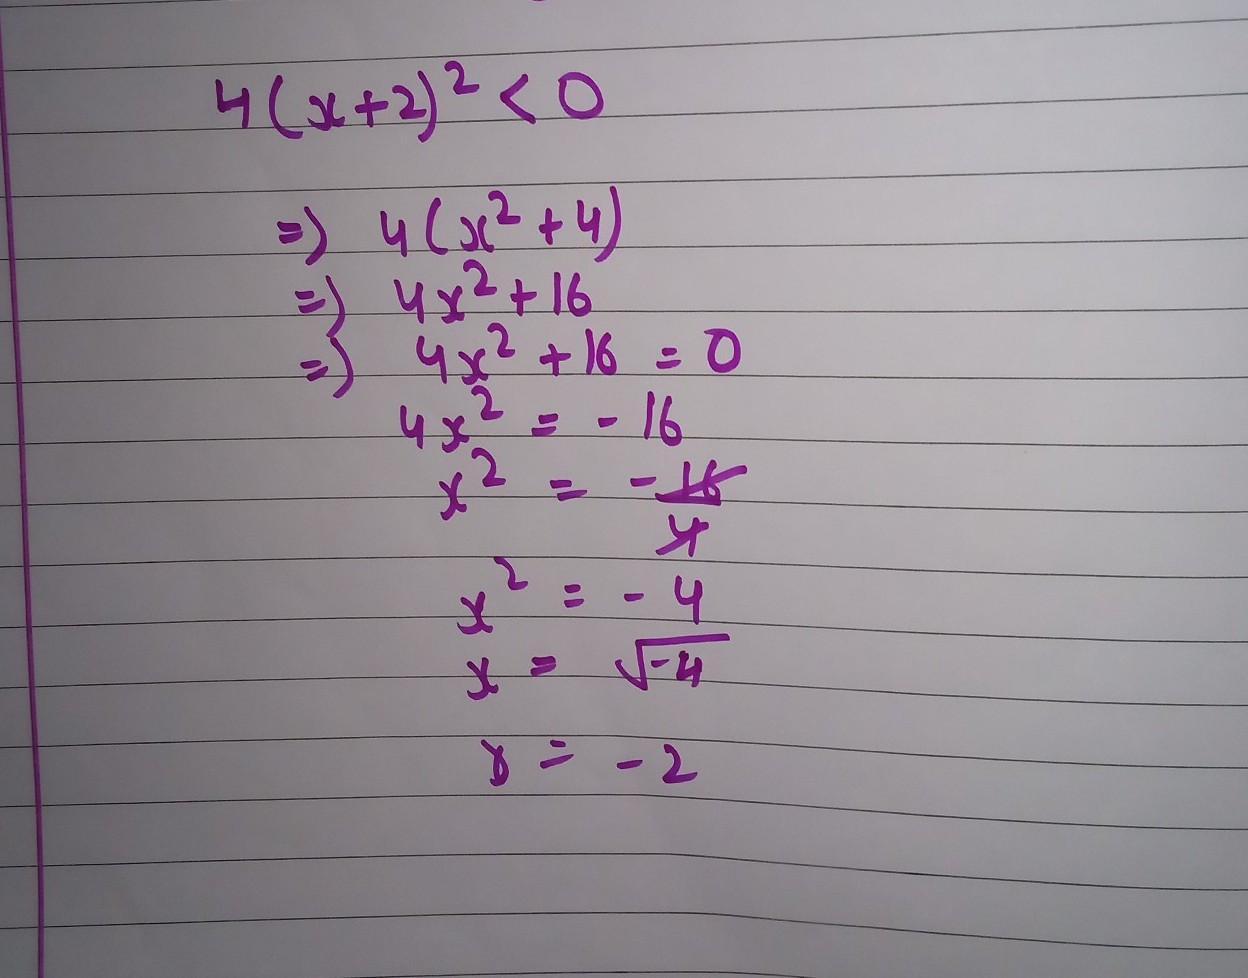 4(x+2)² < 0
=) 4(x²+4)
=) 4x²+16
=) 4x²+16 = 0
4x² = -16
x² = -16/4
x² = -4
x = √-4
x = -2